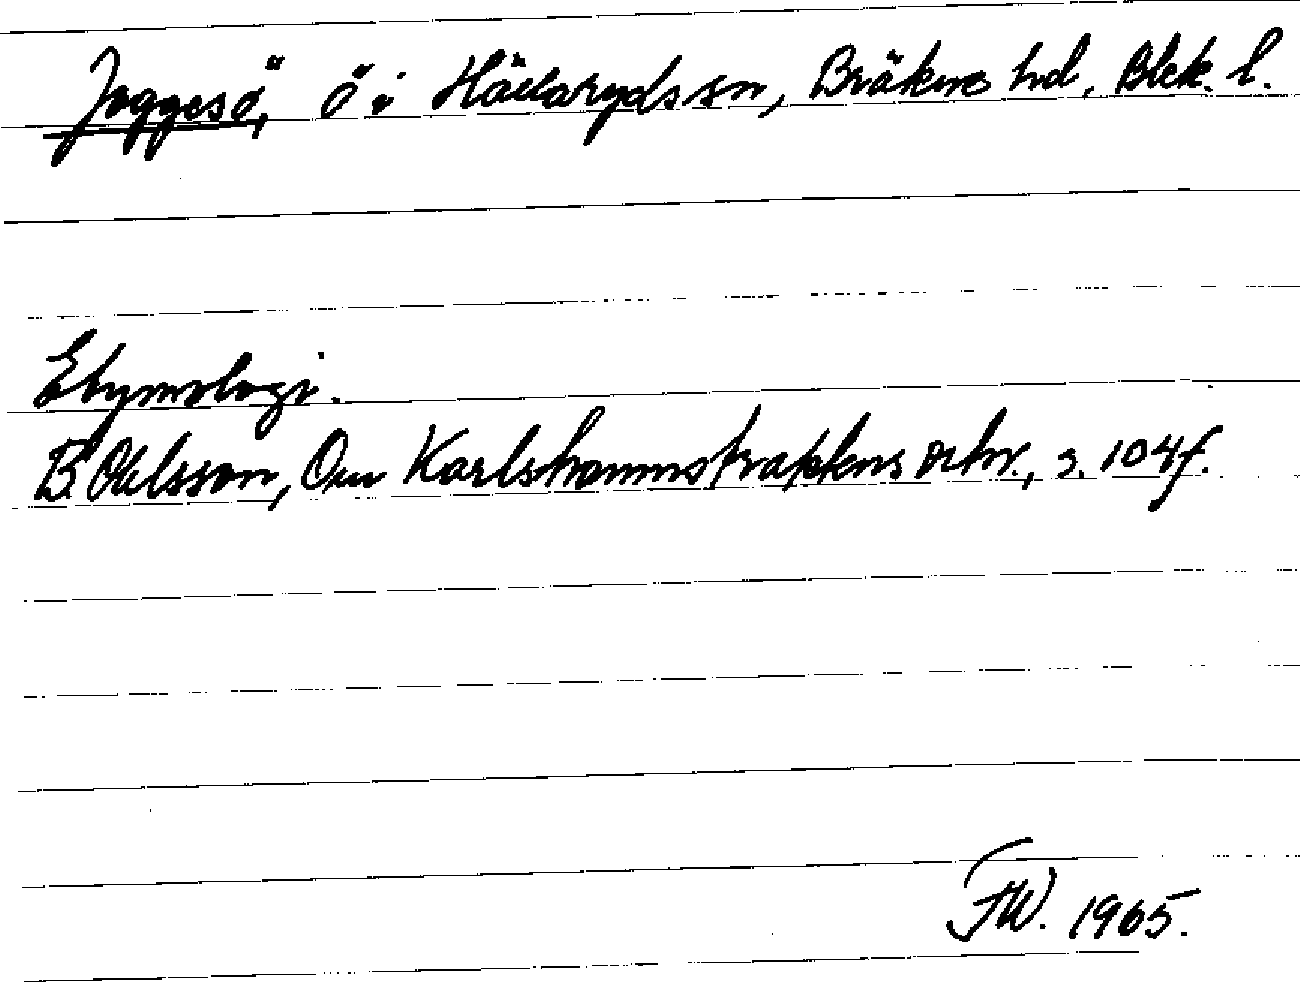 Joggesö, ö i Hällaryds sn, Bräkne hd, Blek. l.
Etymologi.
B. Ohlsson, Om Karlshamnstraktens ortn., s. 104 f.
FW. 1965.